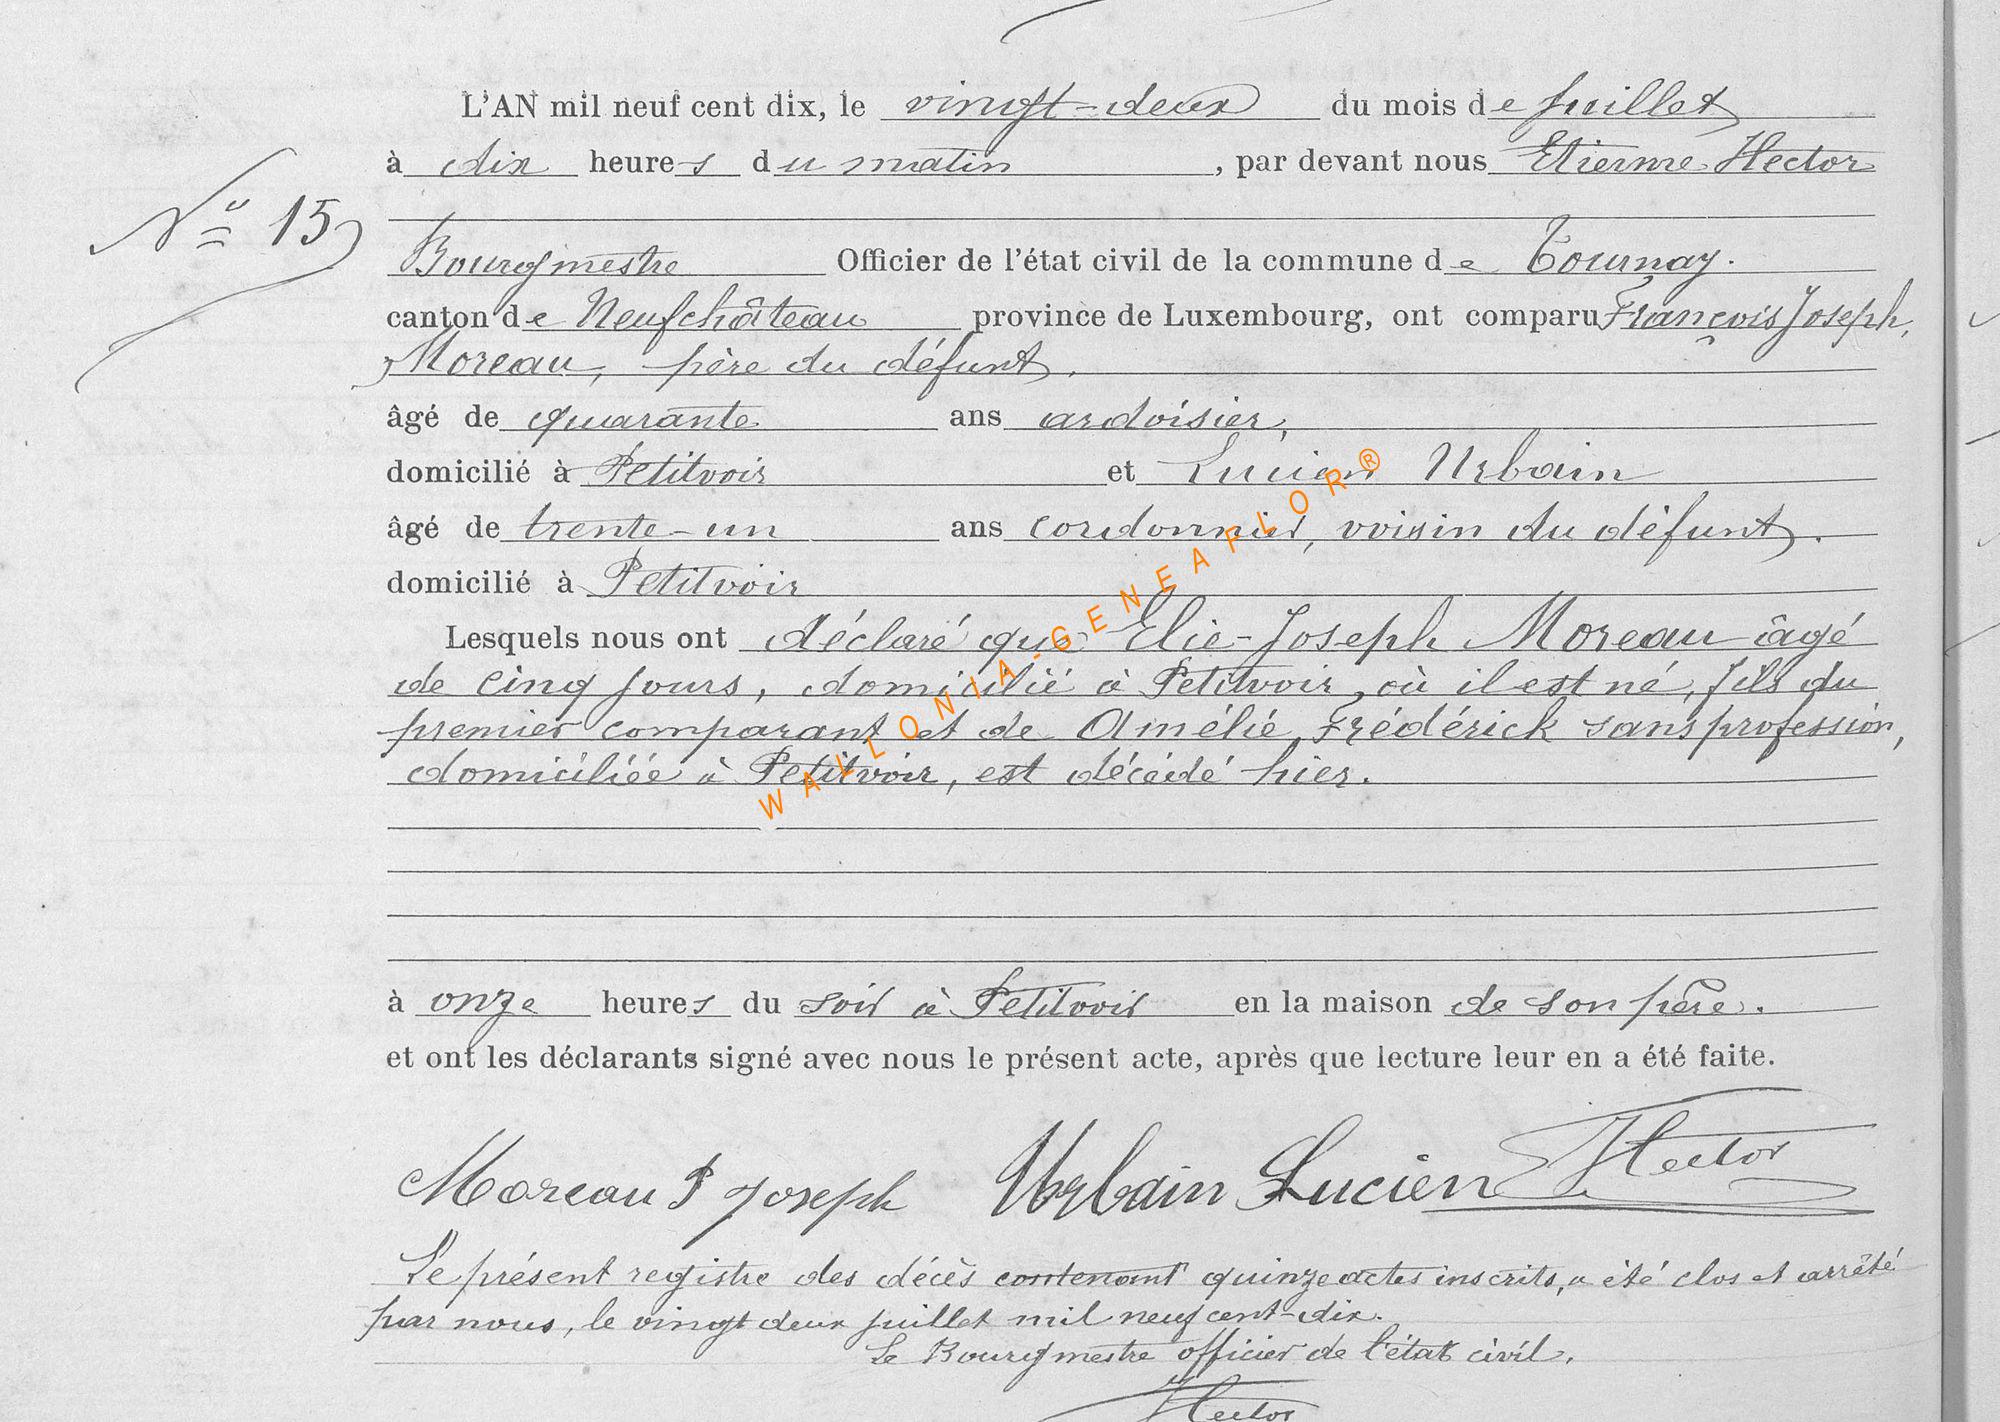 L'AN mil neuf cent dix, le vingt-deux du mois de juillet
à dix heures du matin, par devant nous Etienne Hector
Nº 15
Bourgmestre Officier de l'état civil de la commune de Tournay.
canton de Neufchâteau province de Luxembourg, ont comparu François Joseph,
Moreau, père du défunt,
âgé de quarante ans ardoisier,
domicilié à Petitvoir et Lucien Urbain
âgé de trente-un ans cordonnier, voisin du défunt.
domicilié à Petitvoir
Lesquels nous ont déclaré que Elie-Joseph Moreau âgé
de cinq jours, domicilié à Petitvoir, où il est né, fils du
premier comparant et de Amélie Frédérick sans profession,
domiciliée à Petitvoir, est décédé hier.
à onze heures du soir à Petitvoir en la maison de son père.
et ont les déclarants signé avec nous le présent acte, après que lecture leur en a été faite.
Moreau F Joseph Urbain Lucien Hector
Le présent registre des décès contenant quinze actes inscrits, a été clos et arrêté
par nous, le vingt deux juillet mil neuf cent-dix.
Le Bourgmestre officier de l'état civil,
Hector
WALLONIA-GENEAFLOR®